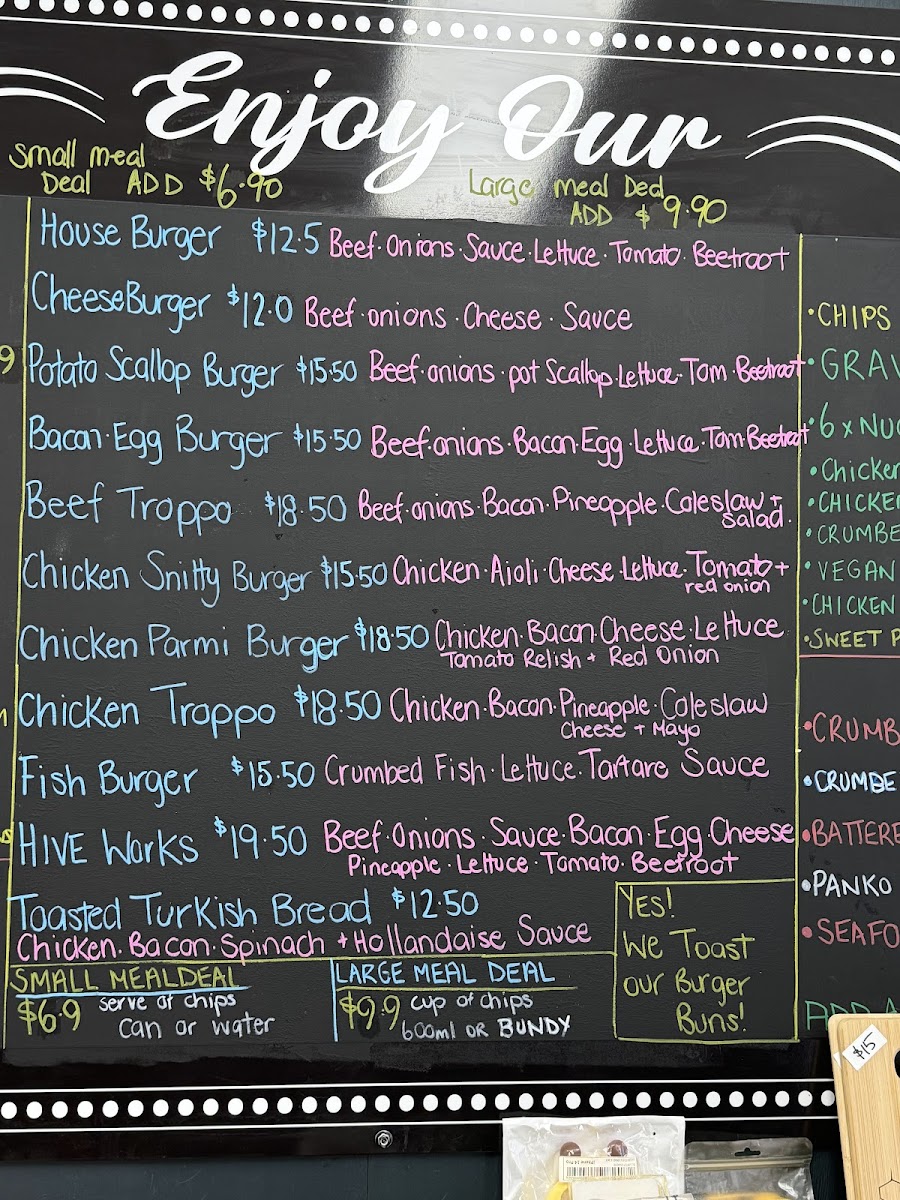 Enjoy Our
Small meal
Deal ADD $6.90
Large meal Deal
ADD $9.90
House Burger $12.5 Beef·Onions·Sauce·Lettuce·Tomato·Beetroot
CheeseBurger $12.0 Beef·onions·Cheese·Sauce
9
Potato Scallop Burger $15.50 Beef·onions·pot Scallop·Lettuce·Tom·Beetroot
Bacon·Egg Burger $15.50 Beef·onions·Bacon·Egg·Lettuce·Tom·Beetroot
Beef Troppo $18.50 Beef·onions·Bacon·Pineapple·Coleslaw +
Salad.
Chicken Snitty Burger $15.50 Chicken·Aioli·Cheese·Lettuce·Tomato +
red onion
Chicken Parmi Burger $18.50 Chicken·Bacon·Cheese·Lettuce
Tomato Relish + Red Onion
Chicken Troppo $18.50 Chicken·Bacon·Pineapple·Coleslaw
Cheese + Mayo
Fish Burger $15.50 Crumbed Fish·Lettuce·Tartare Sauce
HIVE Works $19.50 Beef·Onions·Sauce·Bacon·Egg·Cheese
Pineapple·Lettuce·Tomato·Beetroot
Toasted Turkish Bread $12.50
Chicken·Bacon·Spinach + Hollandaise Sauce
SMALL MEALDEAL
$6.9 serve of chips
can or water
LARGE MEAL DEAL
$9.9 cup of chips
600ml OR BUNDY
YES!
We Toast
our Burger
Buns!
·CHIPS
·GRAV
·6 x NU
·Chicken
·CHICKE
·CRUMBE
·VEGAN
·CHICKEN
·SWEET P
·CRUMB
·CRUMBE
·BATTERE
·PANKO
·SEAFO
ADD A
$15